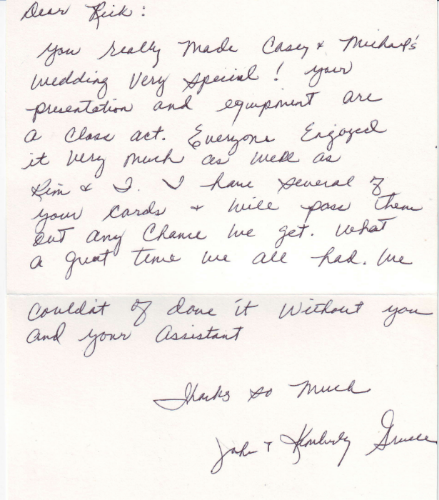 Dear Rick:
You really made Casey & Michael's
wedding very special! your
presentation and equipment are
a class act. Everyone Enjoyed
it very much as well as
Kim & I. I have several of
your cards & will pass them
out any chance we get. What
a great time we all had. We
couldn't of done it without you
and your Assistant
Thanks so much
John & Kimberly